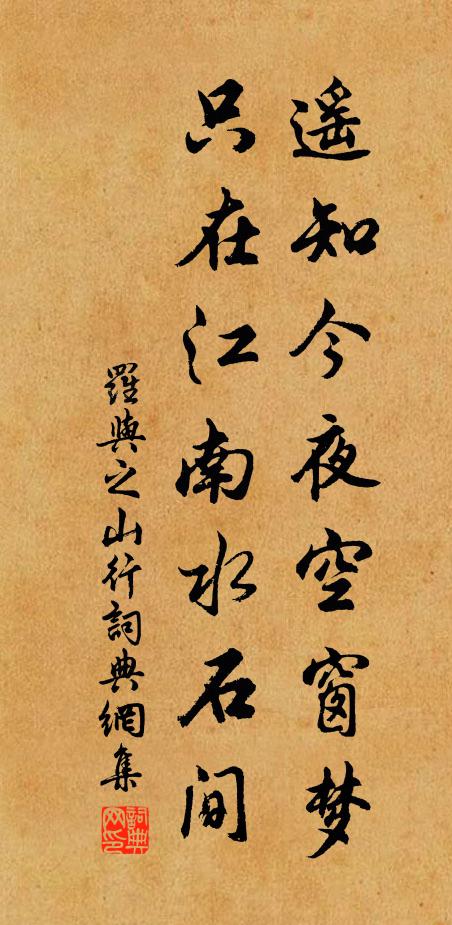 遥知今夜空窗梦
只在江南水石间
羅與之山行詞典網集
詞典网印